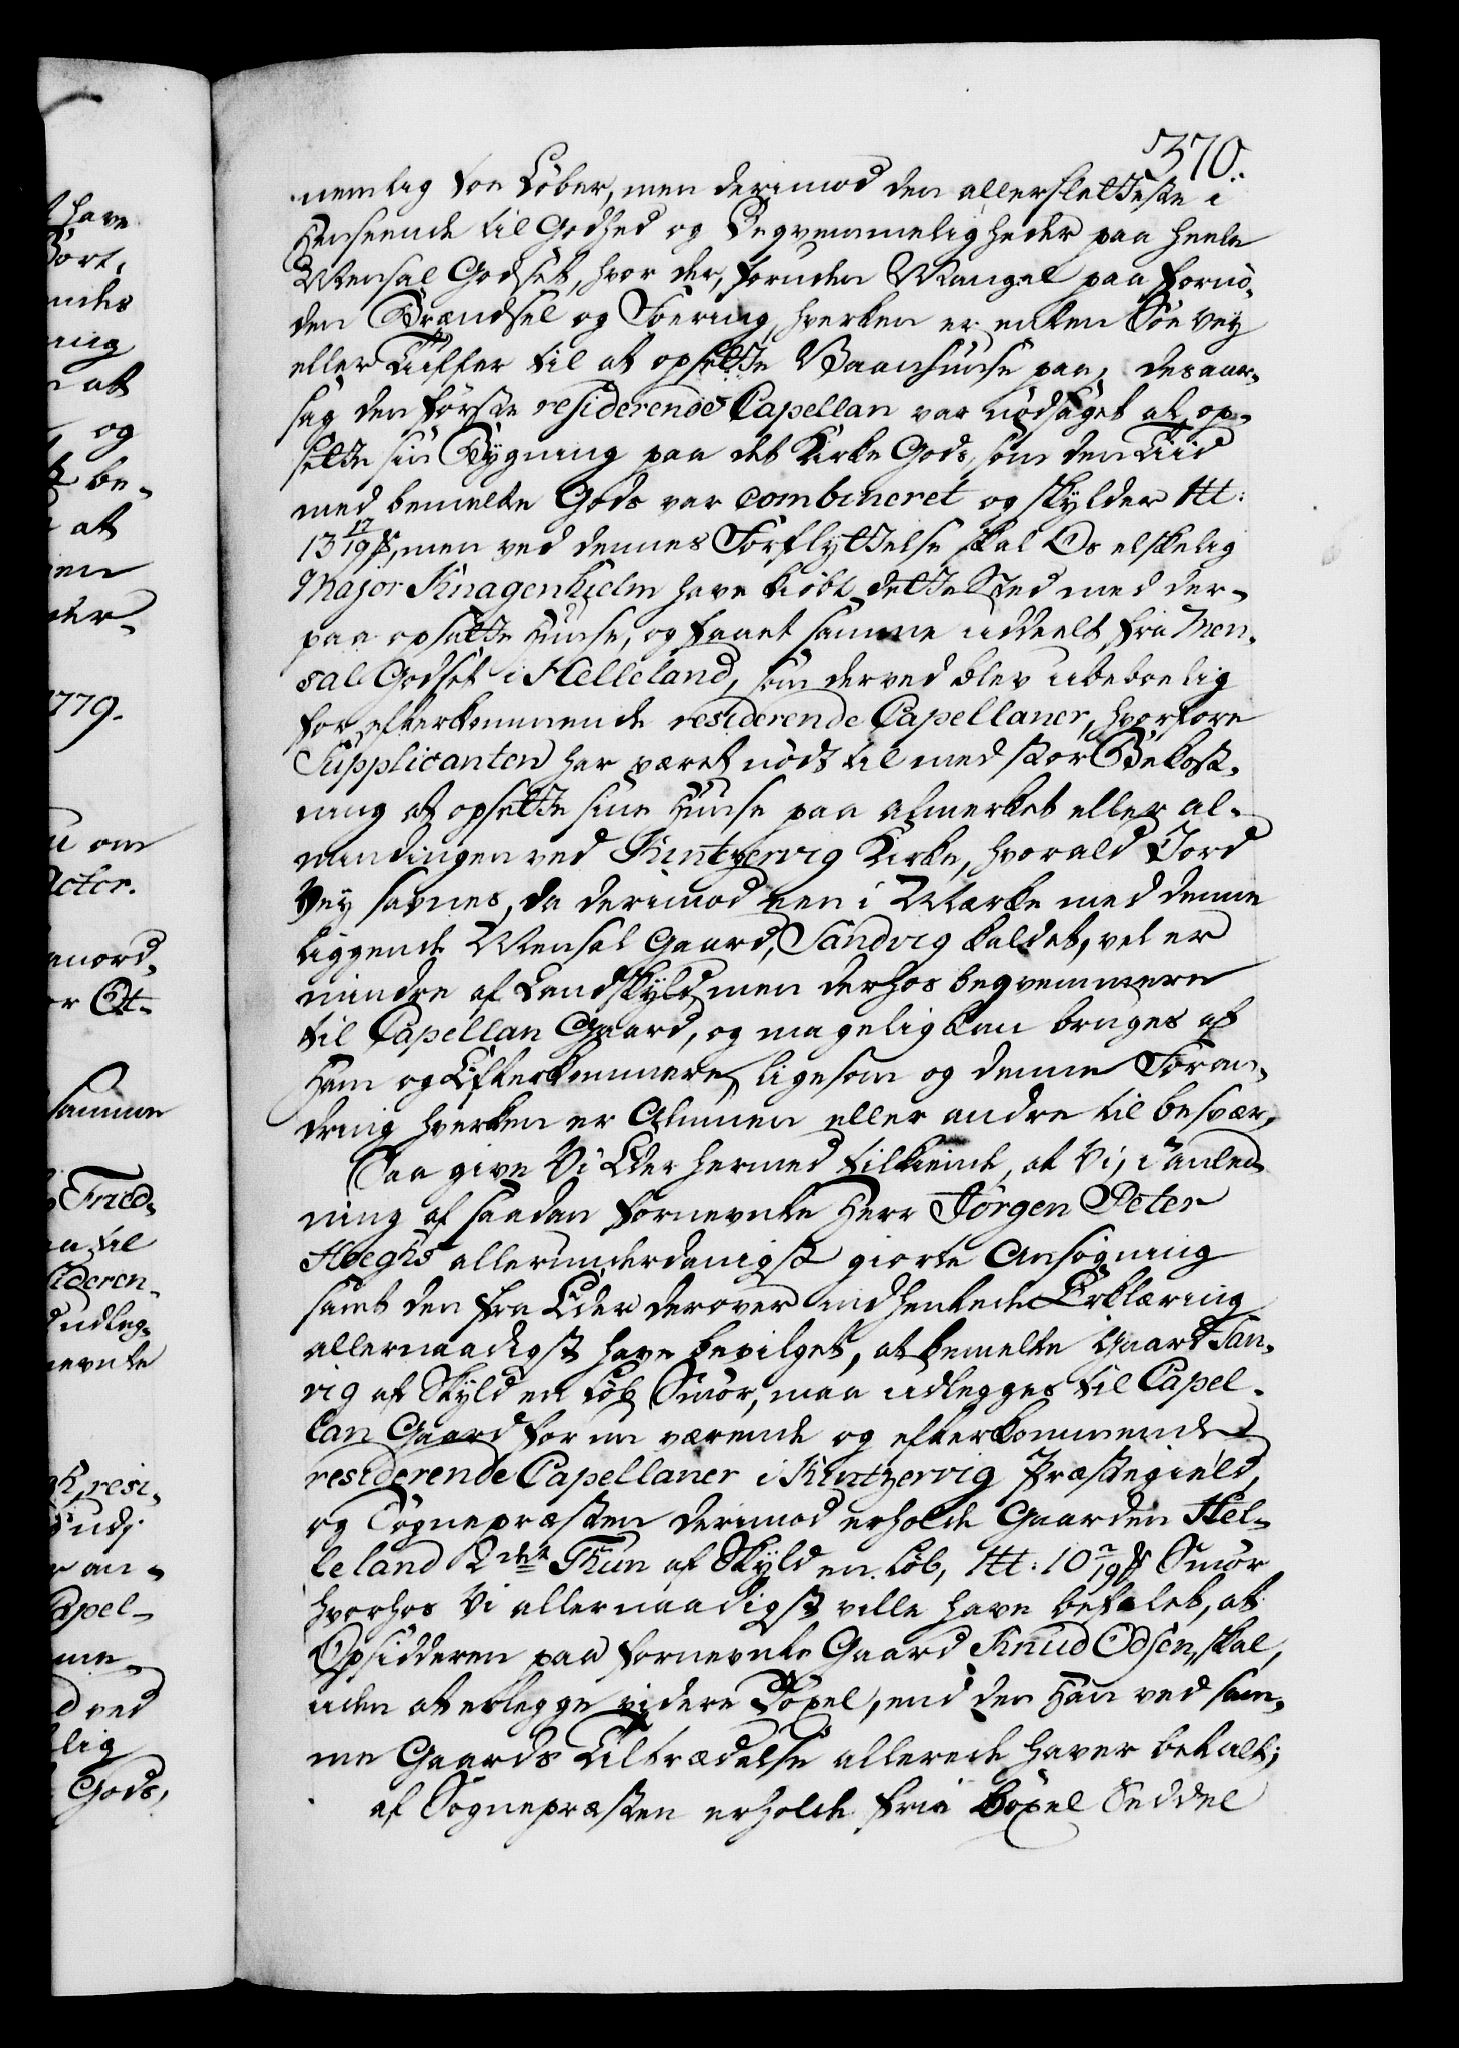 370.
nemlig toe Løber, men derimod den allerslettæste i
Henseende til Godhed og Beqvemmeligheder paa heele
Mensal Godset, hvor der, foruden Mangel paa fornö-
den Brændsel og Foering, hverken er enten Söe Vey
eller Tuffter til at opsette Vaanhuuse paa, desaar-
sag den første residerende Capellan var nødsaget at op-
sette sin Bygning paa det Kirke Gods, som den Tiid
med bemelte Gods var combineret og skylder ltt:
13 17/19 ß, men ved dennes Forflyttelse skal Os elskelig
Major Knagenhielm have kiøbt dette Sted med der-
paa opsatte Huuse, og faaet samme uddeelt fra Men-
sal Godset i Helleland, som derved blev ubeboelig
for efterkommende residerende Capellaner, hvorfore
Supplicanten har været nødt til med stor Bekost-
ning at opsette sine Huuse paa Udmerket eller al-
mindingen ved Kintzervig Kirke, hvor ald Jord
Vey savnes, da derimod een i Mærke med denne
liggende Mensal Gaard, Sandvig kaldet, vel er
mindre af Landskyld, men derhos beqvemmere
til Capellan Gaard, og magelig kan bruges af
Ham og Efterkommere, ligesom og denne Foran-
dring hverken er Alumen eller andre til besvær,
Saa give Vi Eder hermed tilkiende, at Vi, i anled-
ning af saadan fornevnte Herr Jørgen Peter
Høeghs allerunderdanigst giorte Ansøgning
samt den fra Eder derover indhentede Erklæring
allernaadigst have bevilget, at bemelte Gaard San-
vig af Skyld en Løb Smör, maa udlegges til Capel-
lan Gaard for nu værende og efterkommende
residerende Capellaner i Kintzervig Præstegield,
og Sognepræsten derimod erholde Gaarden Hel-
leland 2det Thun af Skyld en Løb, ltt: 10 2/19 ß Smör
hvorhos Vi allernaadigst ville have befalet, at
Opsidderen paa fornevnte Gaard Knud Odsen, skal,
uden at erlegge videre Böxel, end den Han ved sam-
me Gaards Tiltrædelse allerede haver betalt,
af Sognepræsten erholde frie Böxel Seddel